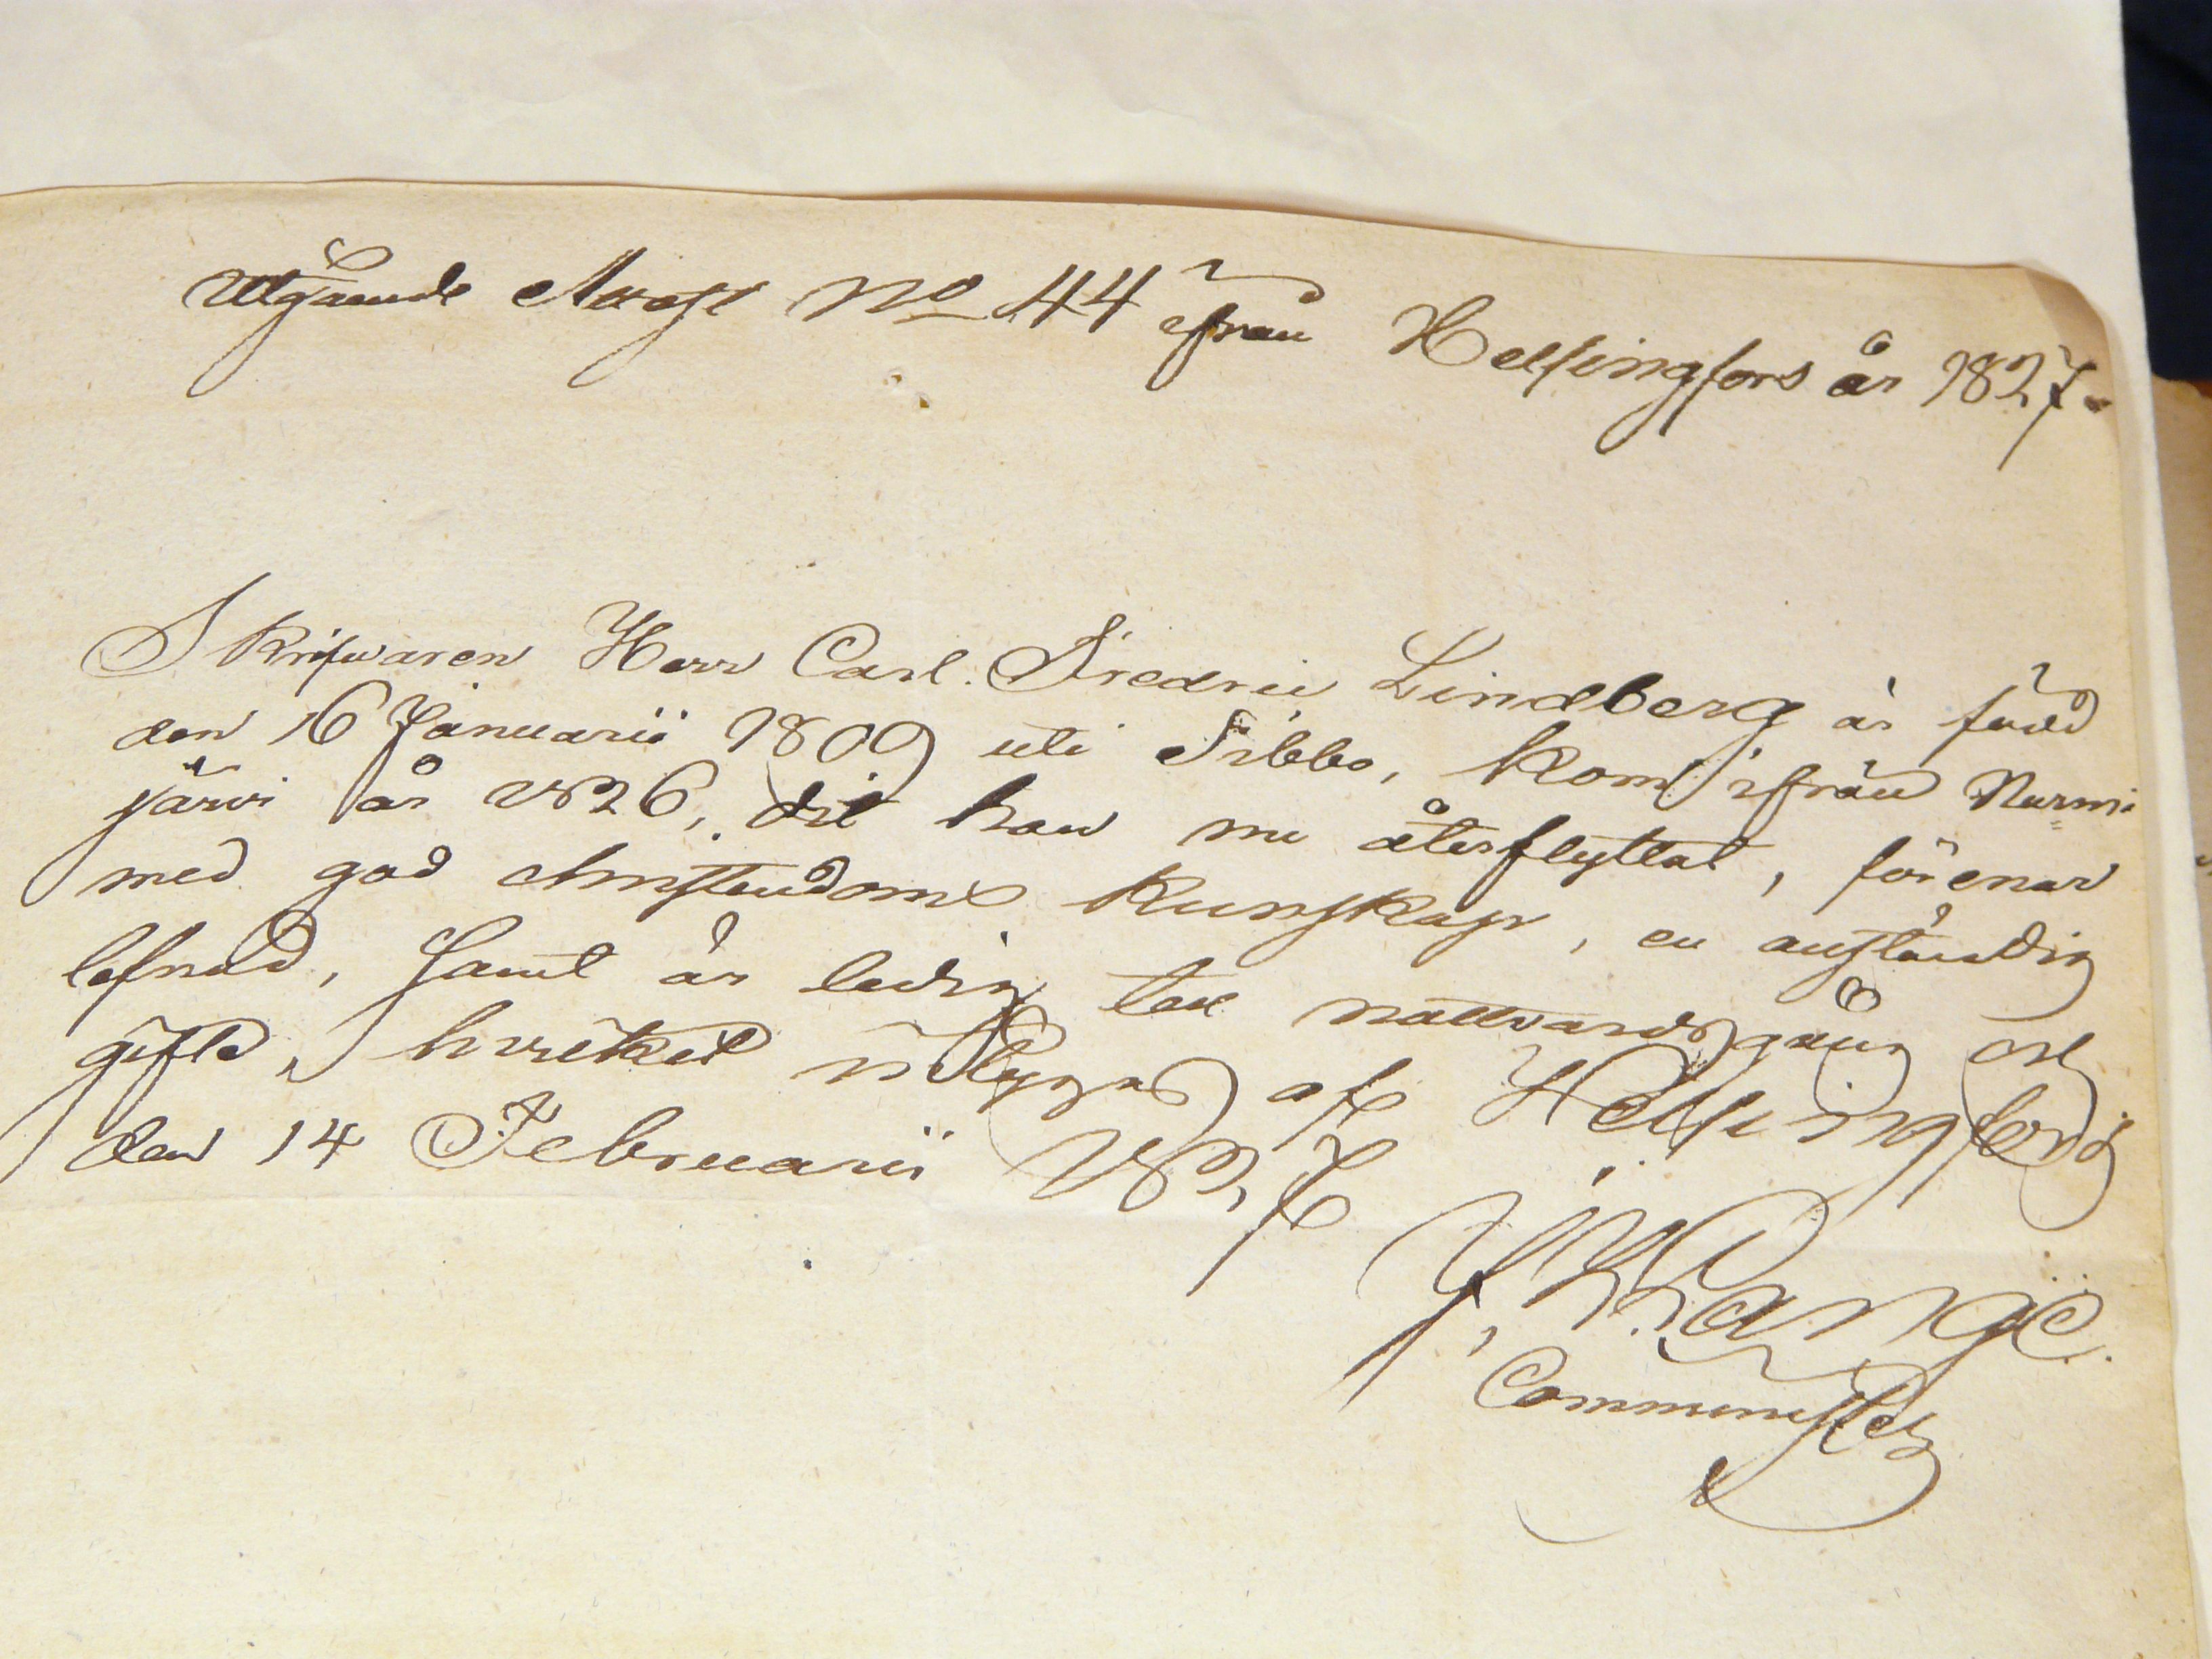 Utgående Attest No 44 från Helsingfors år 1827.
Skrifwaren Herr Carl Fredric Lindberg är född
den 16 Januarii 1809 uti Sibbo, kom ifrån Nurmi=
järvi år 1826, dit han nu återflyttat, förenar
med god christendoms kunskap, en anständig
lefnad, samt är ledig till nattvardsgång och
gifte, hvilket intygas af Helsingfors
den 14 Februarii 1827
Comminister